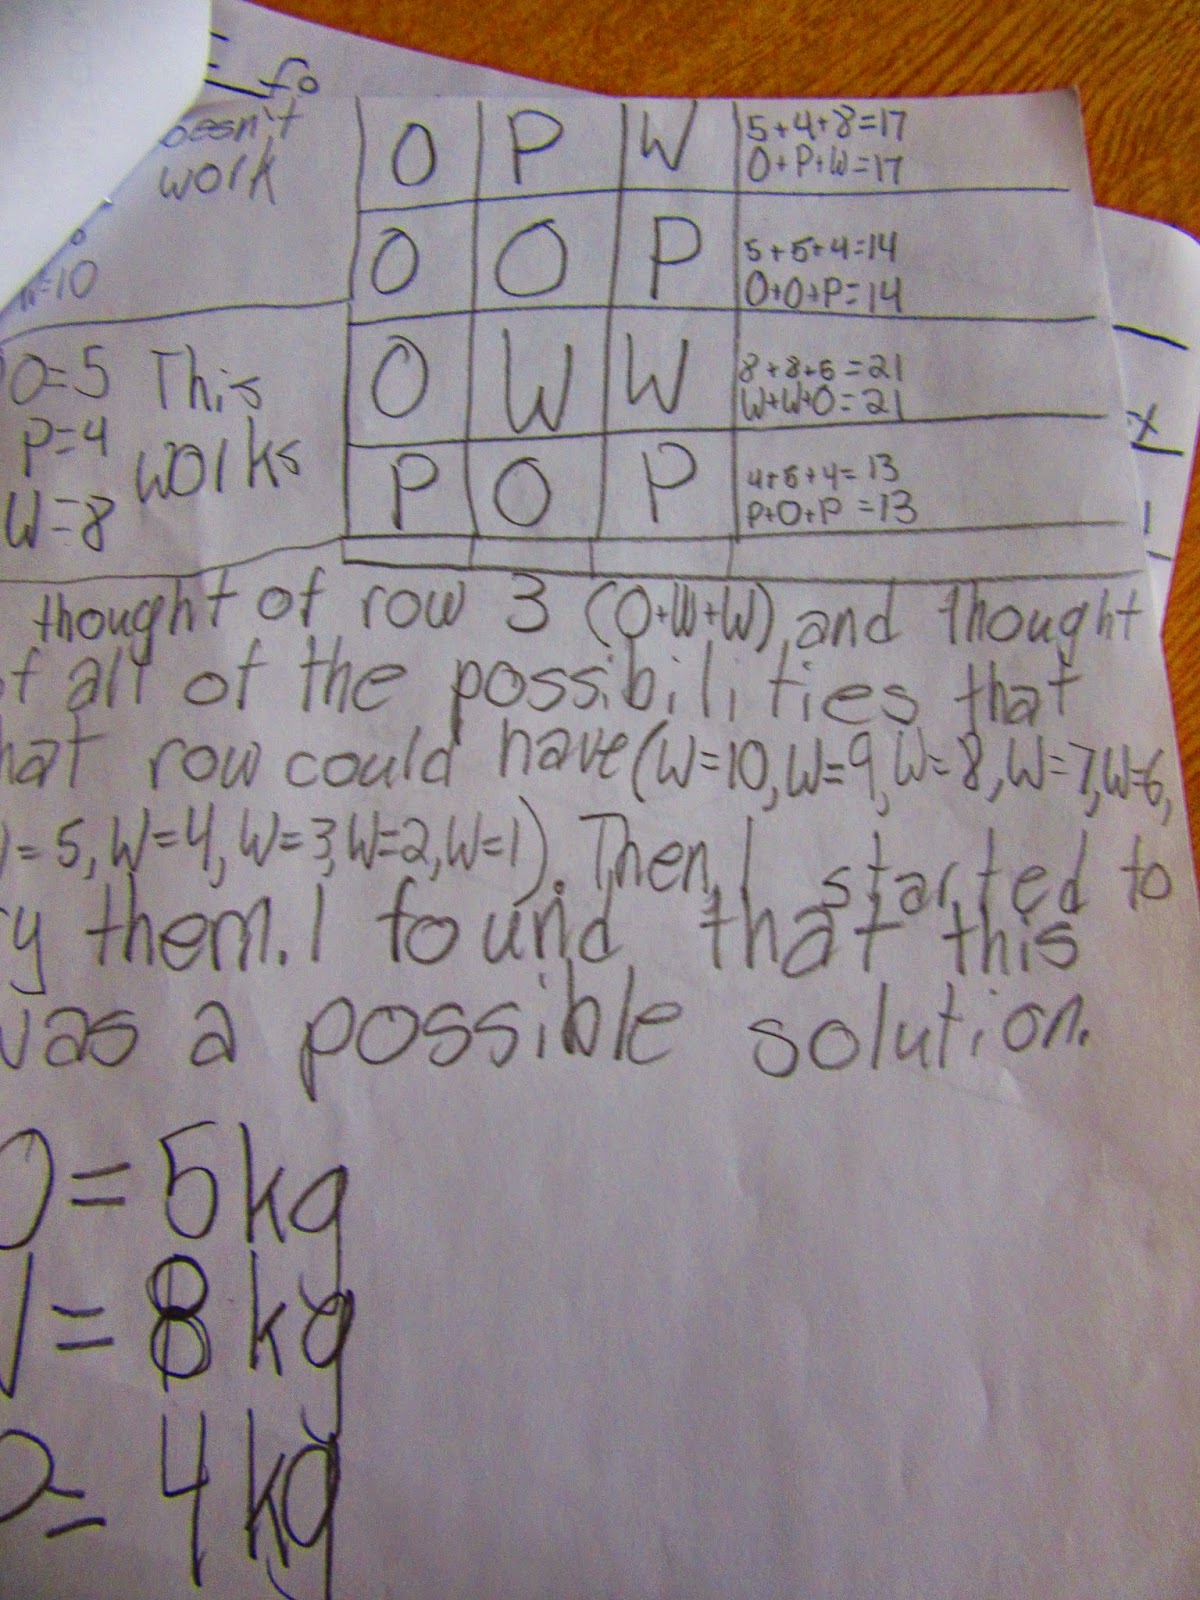 fo
doesn't
work
=10
O P W 5+4+8=17
O+P+W=17
O O P 5+5+4=14
O+O+P=14
O W W 8+8+5=21
W+W+O=21
P O P 4+5+4=13
P+O+P=13
O=5 This
P=4 works
W=8
thought of row 3 (O+W+W), and thought
of all of the possibilities that
hat row could have (W=10, W=9, W=8, W=7, W=6,
=5, W=4, W=3, W=2, W=1). Then, I started to
ry them. I found that this
was a possible solution.
O=5kg
=8kg
P=4kg